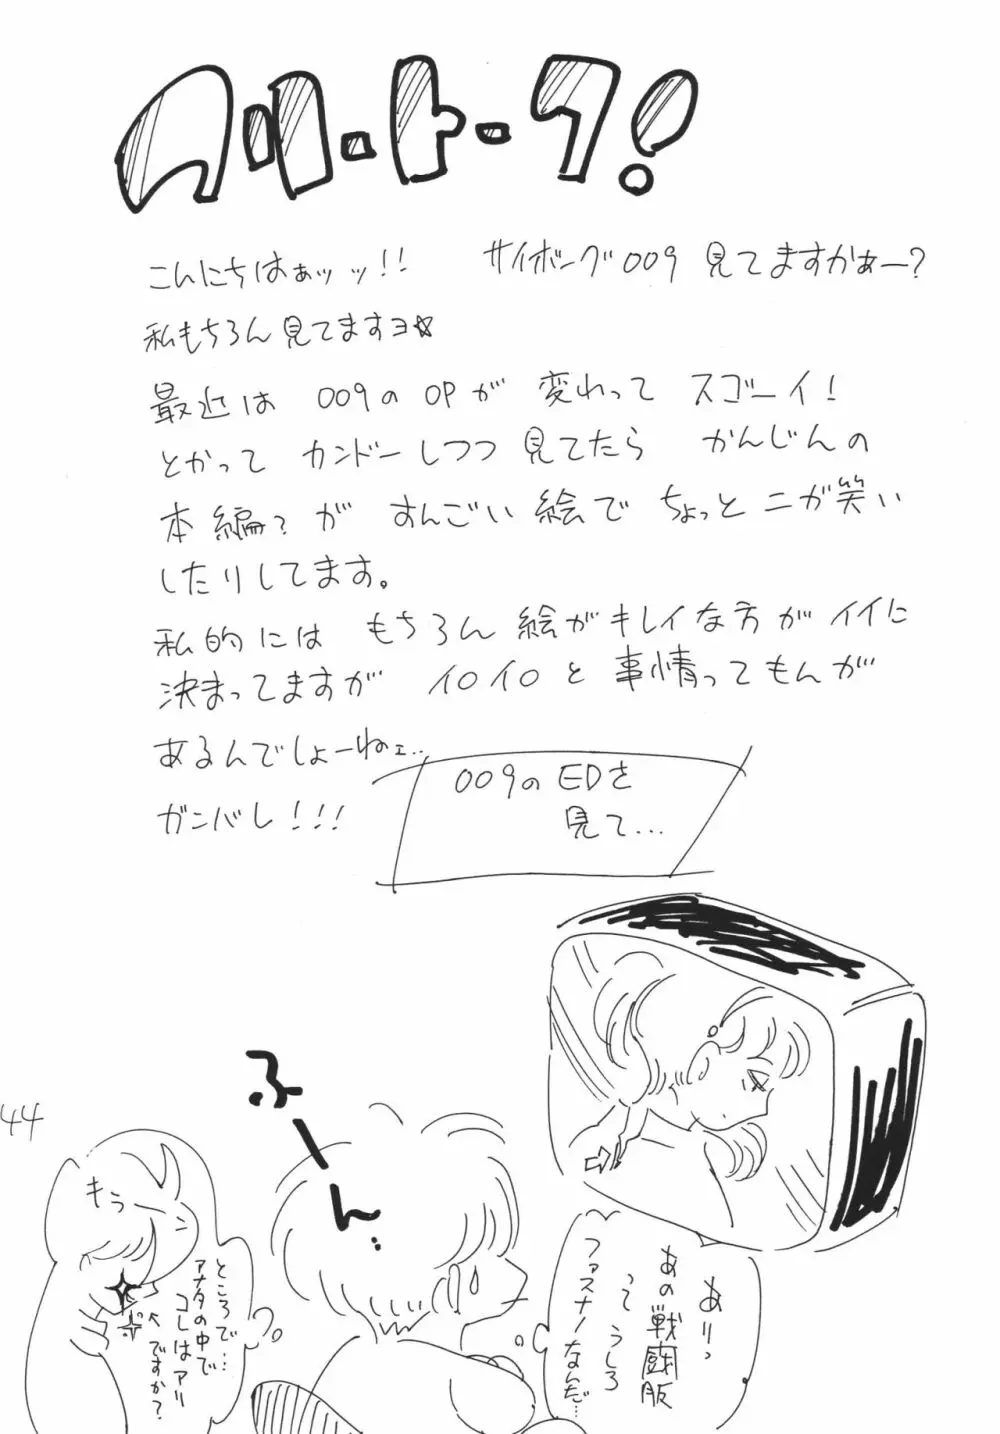 フリートーク!
こんにちはぁッッ!! サイボーグ009見てますかぁー?
私もちろん見てますヨ☆
最近は 009のOPが 変わって スゴーイ!
とかって カンドーしつつ 見てたら かんじんの
本編?が すんごい絵で ちょっとニガ笑い
したりしてます。
私的には もちろん絵がキレイな方がイイに
決まってますが イロイロと事情ってもんが
あるんでしょーねェ…
ガンバレ!!!
009のEDを
見て…
44
ふーん…
もう
ところで…
アナタの中で
コレはアリ
ですか?
ありっ
あの戦闘服
って うしろ
ファスナーなんだ…